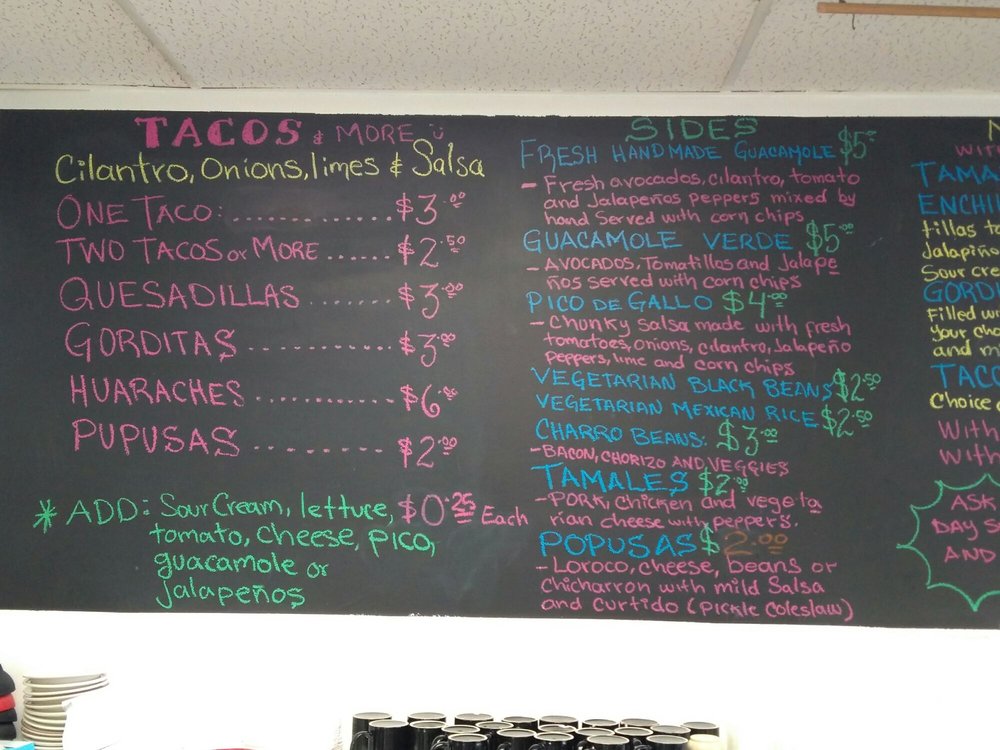 TACOS & MORE
Cilantro, Onions, limes & Salsa
ONE TACO: .............. $3.00
TWO TACOS or MORE ...... $2.50
QUESADILLAS ....... $3.00
GORDITAS ........... $3.00
HUARACHES ........... $6.00
PUPUSAS ........ $2.00
* ADD: Sour Cream, lettuce, $0.25 Each
tomato, cheese, pico,
guacamole or
jalapeños
SIDES
FRESH HANDMADE GUACAMOLE $5.00
- Fresh avocados, cilantro, tomato
and Jalapeños peppers mixed by
hand Served with corn chips
GUACAMOLE VERDE $5.00
- AVOCADOS, Tomatillos and Jalape
ños served with corn chips
PICO DE GALLO $4.00
- Chunky Salsa made with fresh
tomatoes, onions, cilantro, Jalapeño
peppers, lime and corn chips
VEGETARIAN BLACK BEANS $2.50
VEGETARIAN MEXICAN RICE $2.50
CHARRO BEANS: $3.00
- BACON, CHORIZO AND VEGGIES
TAMALES $2.00
- PORK, Chicken and vegeta
rian cheese with peppers.
POPUSAS $2.00
- Loroco, cheese, beans or
chicharron with mild Salsa
and curtido (pickle coleslaw)
WITH
TAMA
ENCHI
tillas to
Jalapiño
Sour cre
GORDI
Filled wi
your cho
and mi
TACO
Choice o
With
With
ASK
DAY S
AND